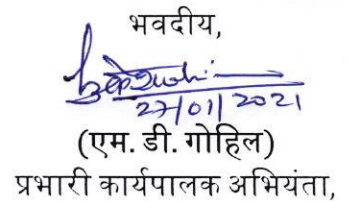 भवदीय,
27/01/2021
(एम. डी. गोहिल)
प्रभारी कार्यपालक अभियंता,